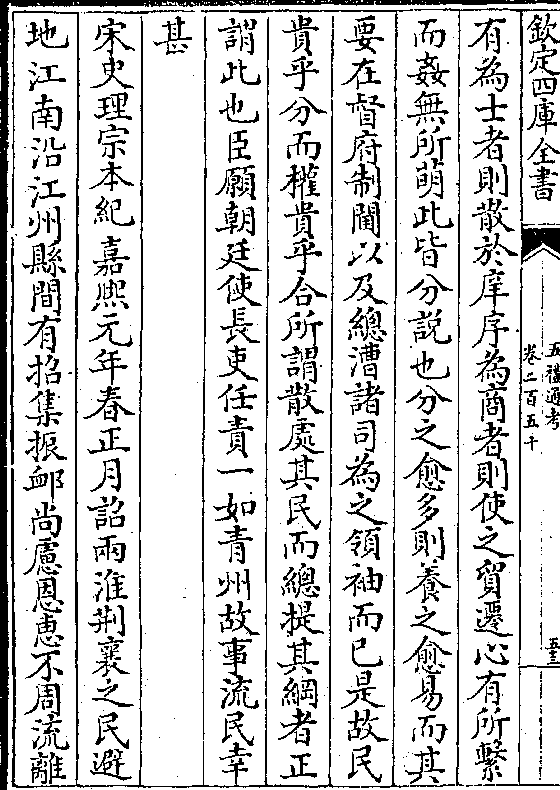 欽定四庫全書
五禮通考
卷二百五十
五三
有為士者則散於庠序為商者則使之貿遷心有所繫
而姦無所萌此皆分說也分之愈多則養之愈易而其
要在督府制閫以及總漕諸司為之領袖而已是故民
貴乎分而權貴乎合所謂散處其民而總提其綱者正
謂此也臣願朝廷使長吏任責一如青州故事流民幸
甚
宋史理宗本紀嘉熙元年春正月詔兩淮荆襄之民避
地江南沿江州縣間有招集振䘏尚慮恩惠不周流離